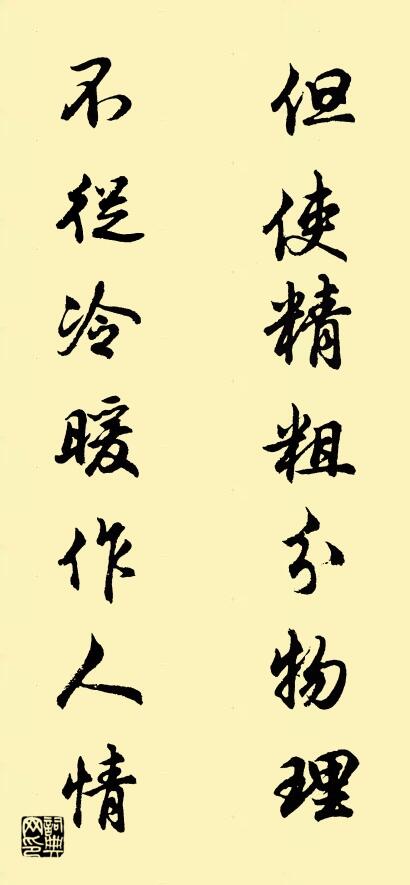 但使精粗分物理
不從冷暖作人情
詞典网印